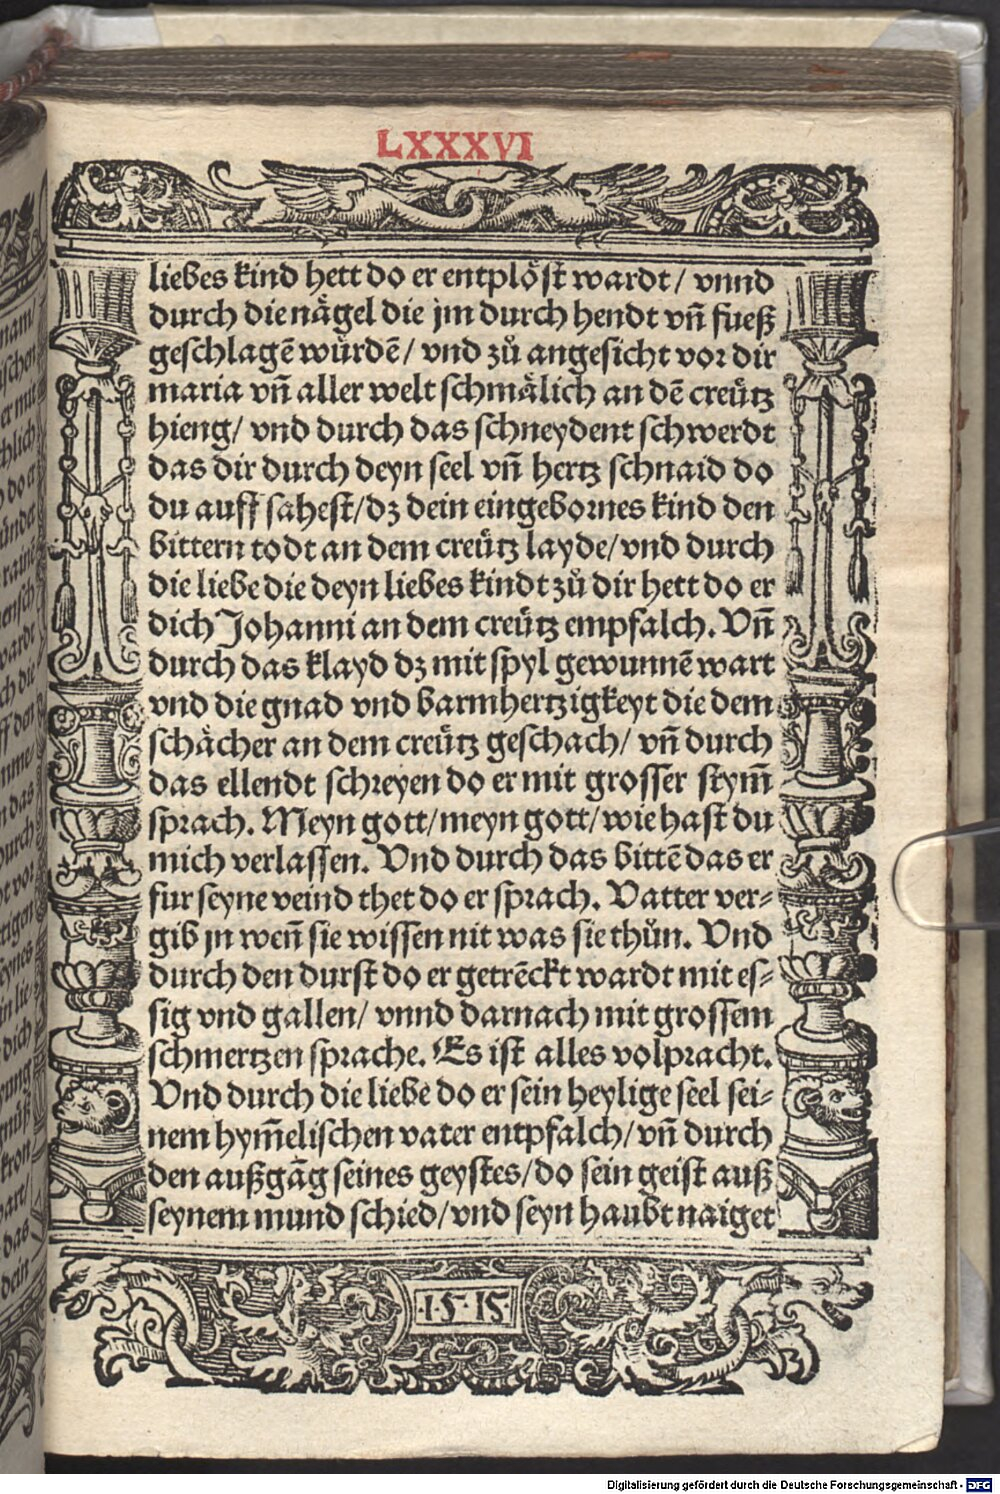 LXXXVI
liebes kind hett do er entplöst wardt / vnnd
durch die nägel die jm durch hendt vñ fueß
geschlagẽ würdẽ / vnd zů angesicht vor dir
maria vñ aller welt schmälich an dẽ creütz
hieng / vnd durch das schneydent schwerdt
das dir durch deyn seel vñ hertz schnaid do
du auff sahest / dz dein eingebornes kind den
bittern todt an dem creütz layde / vnd durch
die liebe die deyn liebes kindt zů dir hett do er
dich Johanni an dem creütz empfalch. Vñ
durch das klayd dz mit spyl gewunnẽ wart
vnd die gnad vnd barmhertzigkeyt die dem
schächer an dem creütz geschach / vñ durch
das ellendt schreyen do er mit grosser stym̃
sprach. Meyn gott / meyn gott / wie hast du
mich verlassen. Vnd durch das bittẽ das er
fur seyne veind thet do er sprach. Vatter ver⸗
gib jn weñ sie wissen nit was sie thůn. Vnd
durch den durst do er getrẽckt wardt mit es⸗
sig vnd gallen / vnnd darnach mit grossem
schmertzen sprache. Es ist alles volpracht.
Vnd durch die liebe do er sein heylige seel sei⸗
nem hym̃elischen vater entpfalch / vñ durch
den außgãg seines geystes / do sein geist auß
seynem mund schied / vnd seyn haubt naiget
·1·5·15·
Digitalisierung gefördert durch die Deutsche Forschungsgemeinschaft - DFG